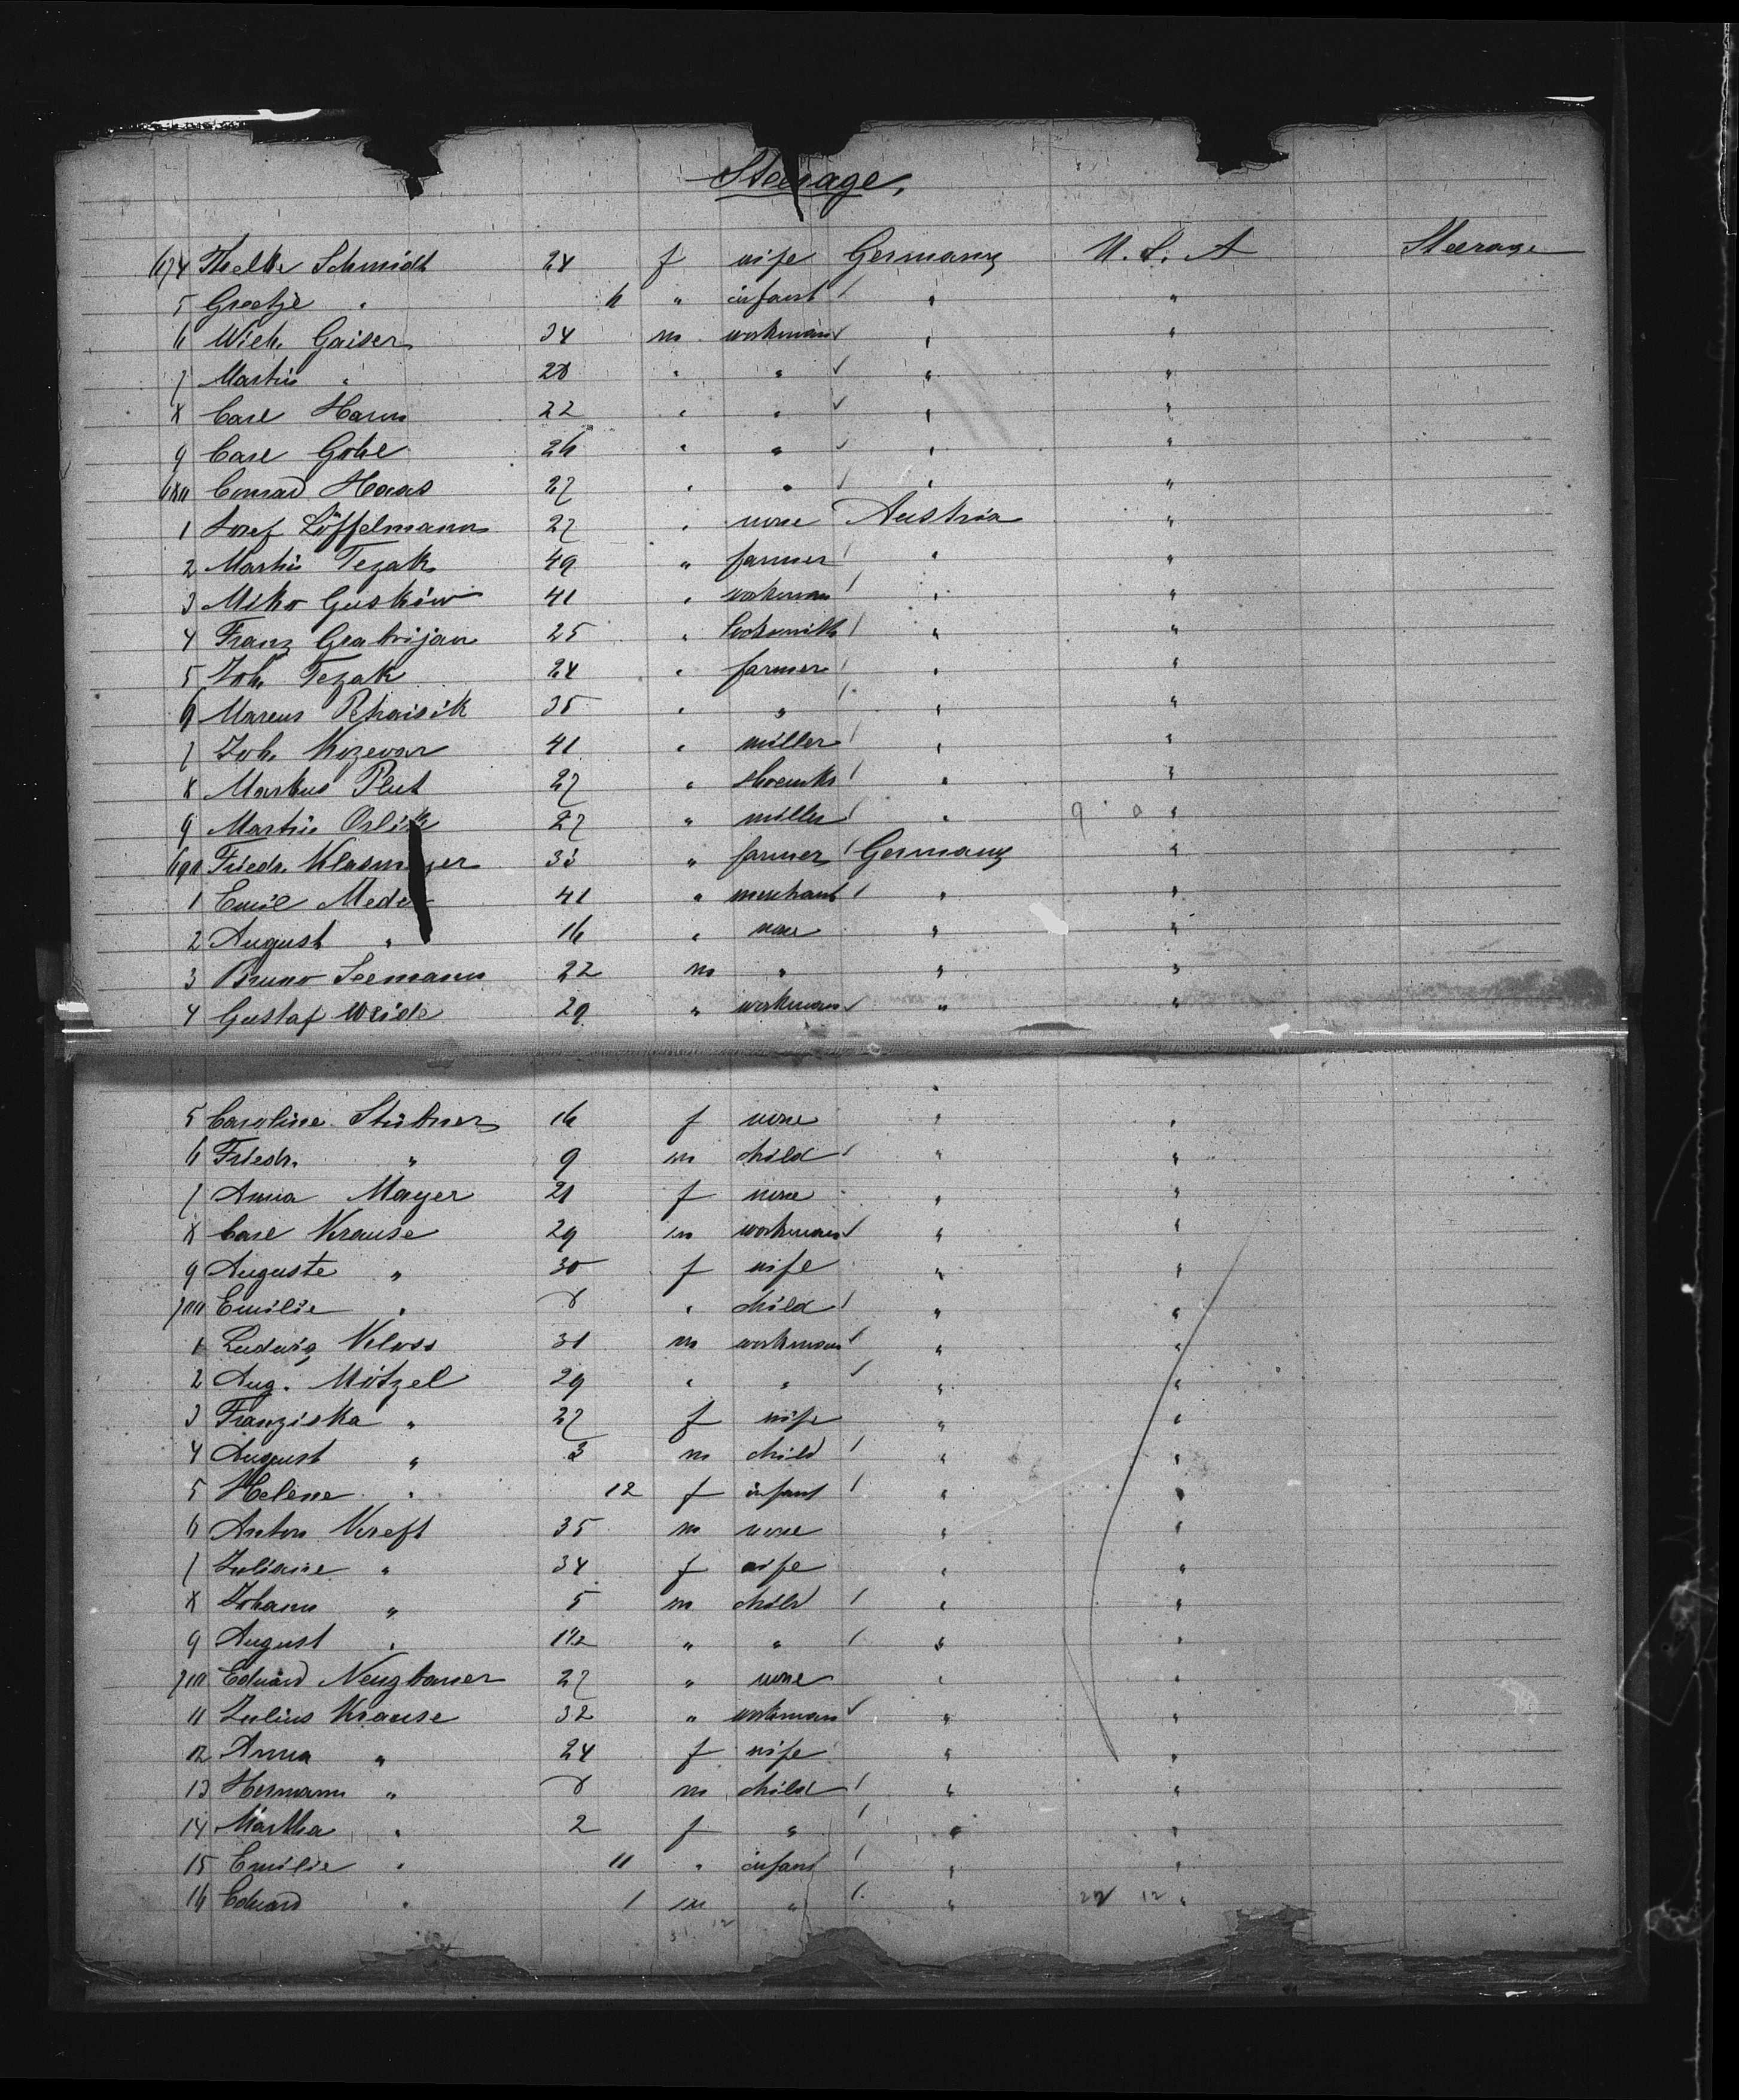 Steerage.
674 Thelke Schmidt 24 f wife Germany U. S. A Steerage
5 Greetje " 6 " infant / " "
6 Wilh. Gaiser 34 m workman ✓ " "
7 Martin " 28 " " ✓ " "
8 Carl Harm 22 " " ✓ " "
9 Carl Gohl 26 " " ✓ " "
680 Conrad Haas 27 " " / " "
1 Josef Löffelmann 27 " none Austria "
2 Martin Tezak 49 " farmer / " "
3 Miko 41 " workman / " "
4 Franz Grabrijan 25 " locksmith / " "
5 Joh. Tezak 24 " farmer / " "
6 Marcus 35 " " / " "
7 Joh. Kozevar 41 " miller / " "
8 Markus Plut 27 " shoemkr / " "
9 Martin 27 " miller / " 9 0 "
690 Friedr. 33 " farmer / Germany "
1 Emil 41 " merchant / " "
2 August " 16 " none " "
3 Bruno Seemann 22 m " " "
4 Gustaf Weide 29 " workman ✓ " "
5 Caroline Stübner 16 f none " "
6 Friedr. " 9 m child / " "
7 Anna Mayer 21 f none " "
8 Carl Krause 29 m workman ✓ " "
9 Auguste " 30 f wife " "
700 Emilie " 8 " child / " "
1 Ludwig Kloss 31 m workman ✓ " "
2 Aug. Mötzel 29 " " / " "
3 Franziska " 27 f wife " "
4 August " 3 m child / " "
5 Helene " 12 f infant / " "
6 Anton Kreft 35 m none " "
7 Juliane " 34 f wife " "
8 Johann " 5 m child / " "
9 August " 1 1/2 " " / " "
710 Eduard Neugbauer 27 " none " "
11 Julius Krause 32 " workman ✓ " "
12 Anna " 24 f wife " "
13 Hermann " 8 m child / " "
14 Martha " 2 f " / " "
15 Emilie " 11 " infant / " "
16 Eduard " 1 m " / " 22 12 "
31 12